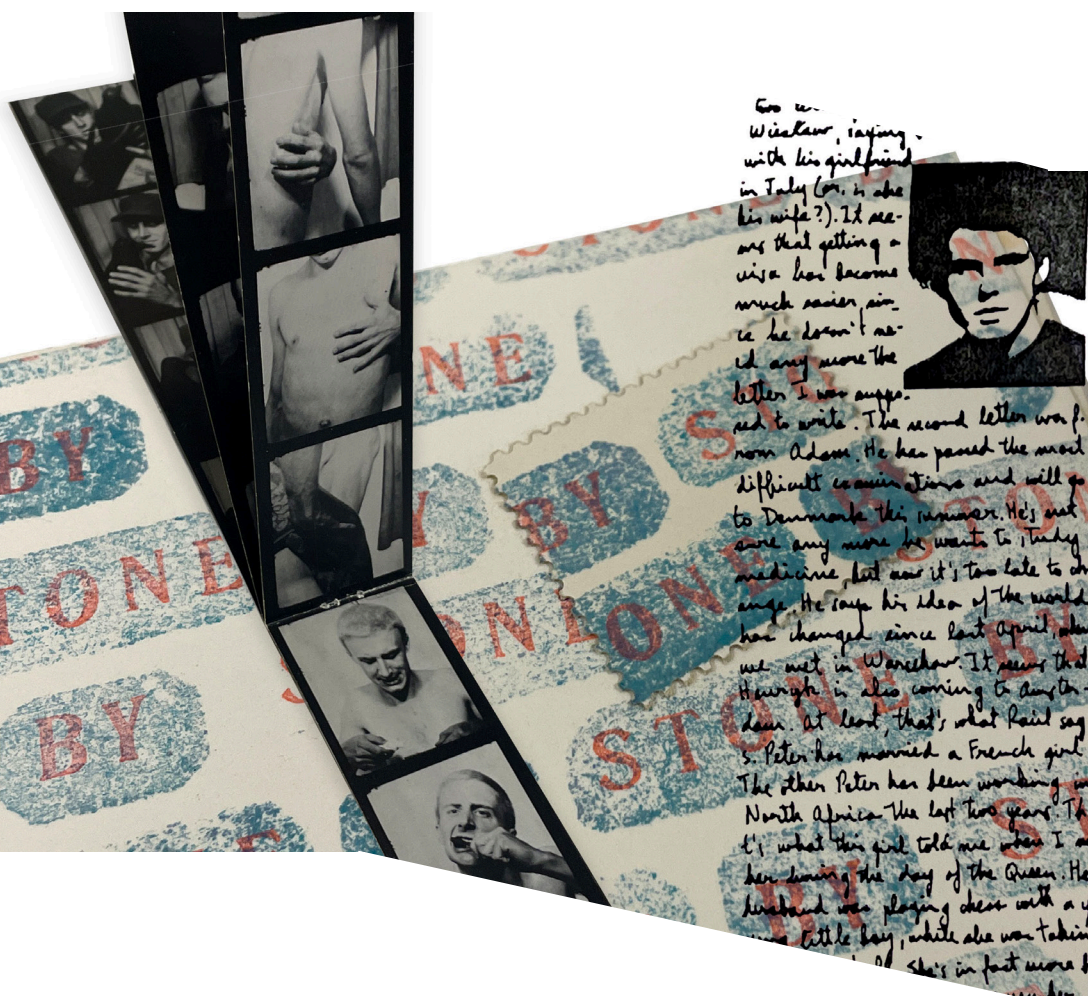 Wiesław, saying
with his girlfriend
in Italy (or, is she
his wife?). It see-
ms that getting a
visa has become
much easier, sin-
ce he doesn't ne-
ed any more the
letter I was suppo-
sed to write. The second letter was f-
rom Adam. He has passed the most
difficult examinations and will go
to Denmark this summer. He's not
sure any more he wants to study
medicine, but now it's too late to ch-
ange. He says his idea of the world
has changed since last April, when
we met in Warschaw. It seems that
Henryk is also coming to Amster-
dam. At least, that's what Raúl say-
s. Peter has married a French girl.
The other Peter has been working
North Africa the last two years. Tha-
t's what this girl told me when I
her during the day of the Queen. He
husband was playing chess with a
little boy, while she was takin
she's in fact more
NE
BY
STO
BY
BY
STO
TONE
STONE
LONE
BY
STONE
BY
S
BY